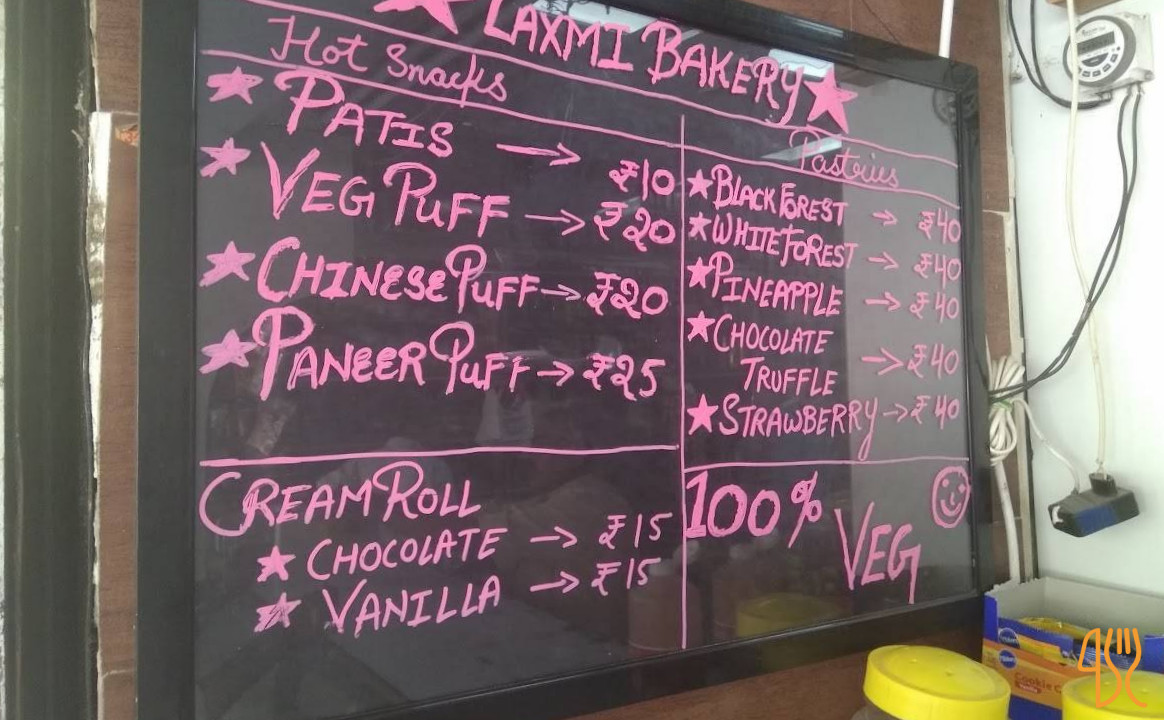 LAXMI BAKERY
Hot Snacks
PATIS → ₹10
VEG PUFF → ₹20
CHINESE PUFF → ₹20
PANEER PUFF → ₹25
CREAM ROLL
CHOCOLATE → ₹15
VANILLA → ₹15
Pastries
BLACK FOREST → ₹40
WHITE FOREST → ₹40
PINEAPPLE → ₹40
CHOCOLATE
TRUFFLE → ₹40
STRAWBERRY → ₹40
100%
VEG